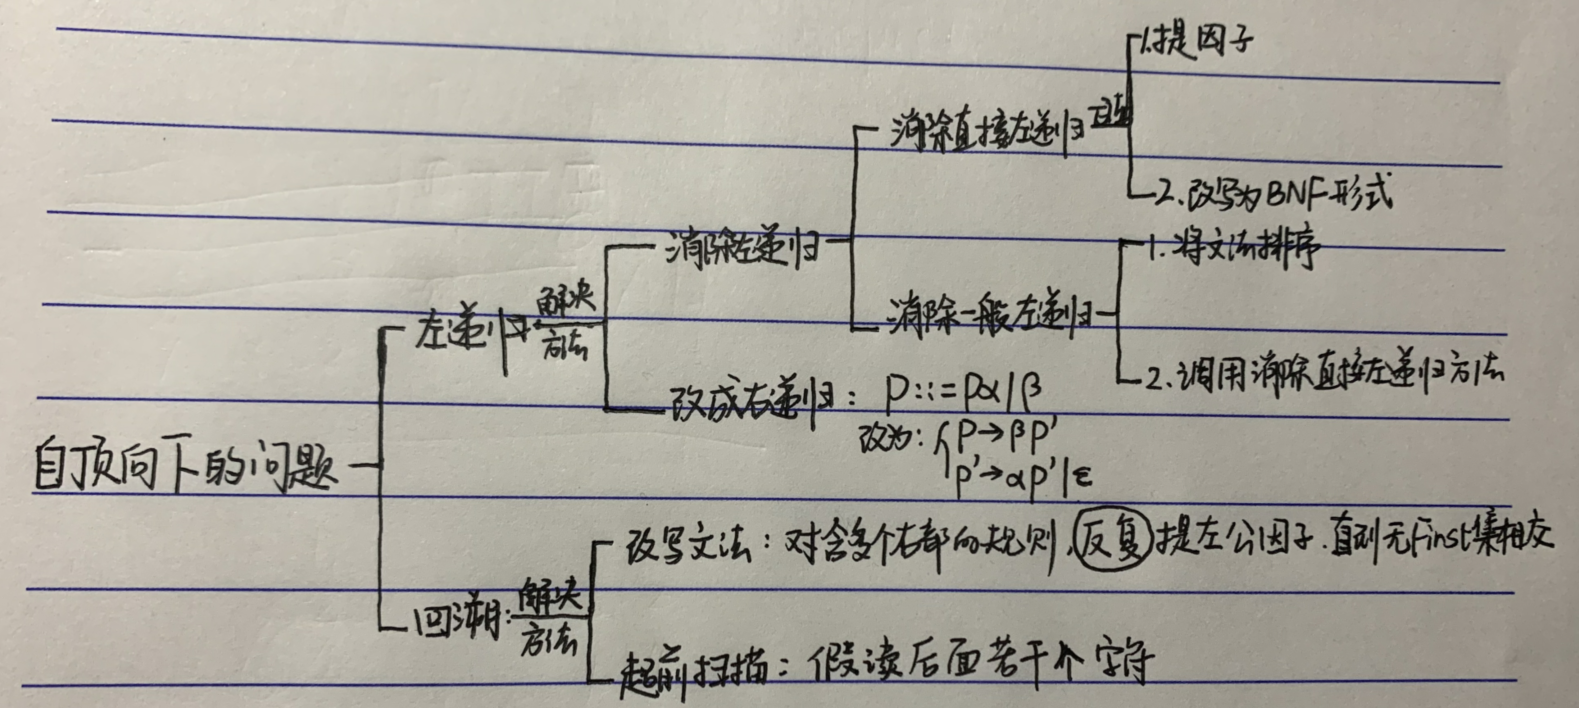 1.提因子
消除直接左递归
2.改写为BNF形式
消除左递归
1.将文法排序
消除一般左递归
左递归 解决
方法
2.调用消除直接左递归方法
改成右递归: P::=Pα|β
改为: P→βP'
P'→αP'|ε
自顶向下的问题
改写文法:对含多个右部的规则,反复提左公因子.直到无First集相交
回溯:解决
方法
超前扫描:假读后面若干个字符